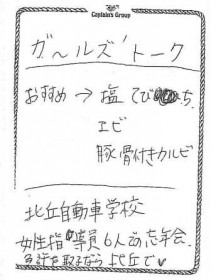 Captain's Group
ガ〜ルズ'トーク
おすすめ → 塩 てびち
エビ
豚骨付きカルビ
北丘自動車学校
女性指導員6人の忘年会。
免許を取るなら北丘で♥